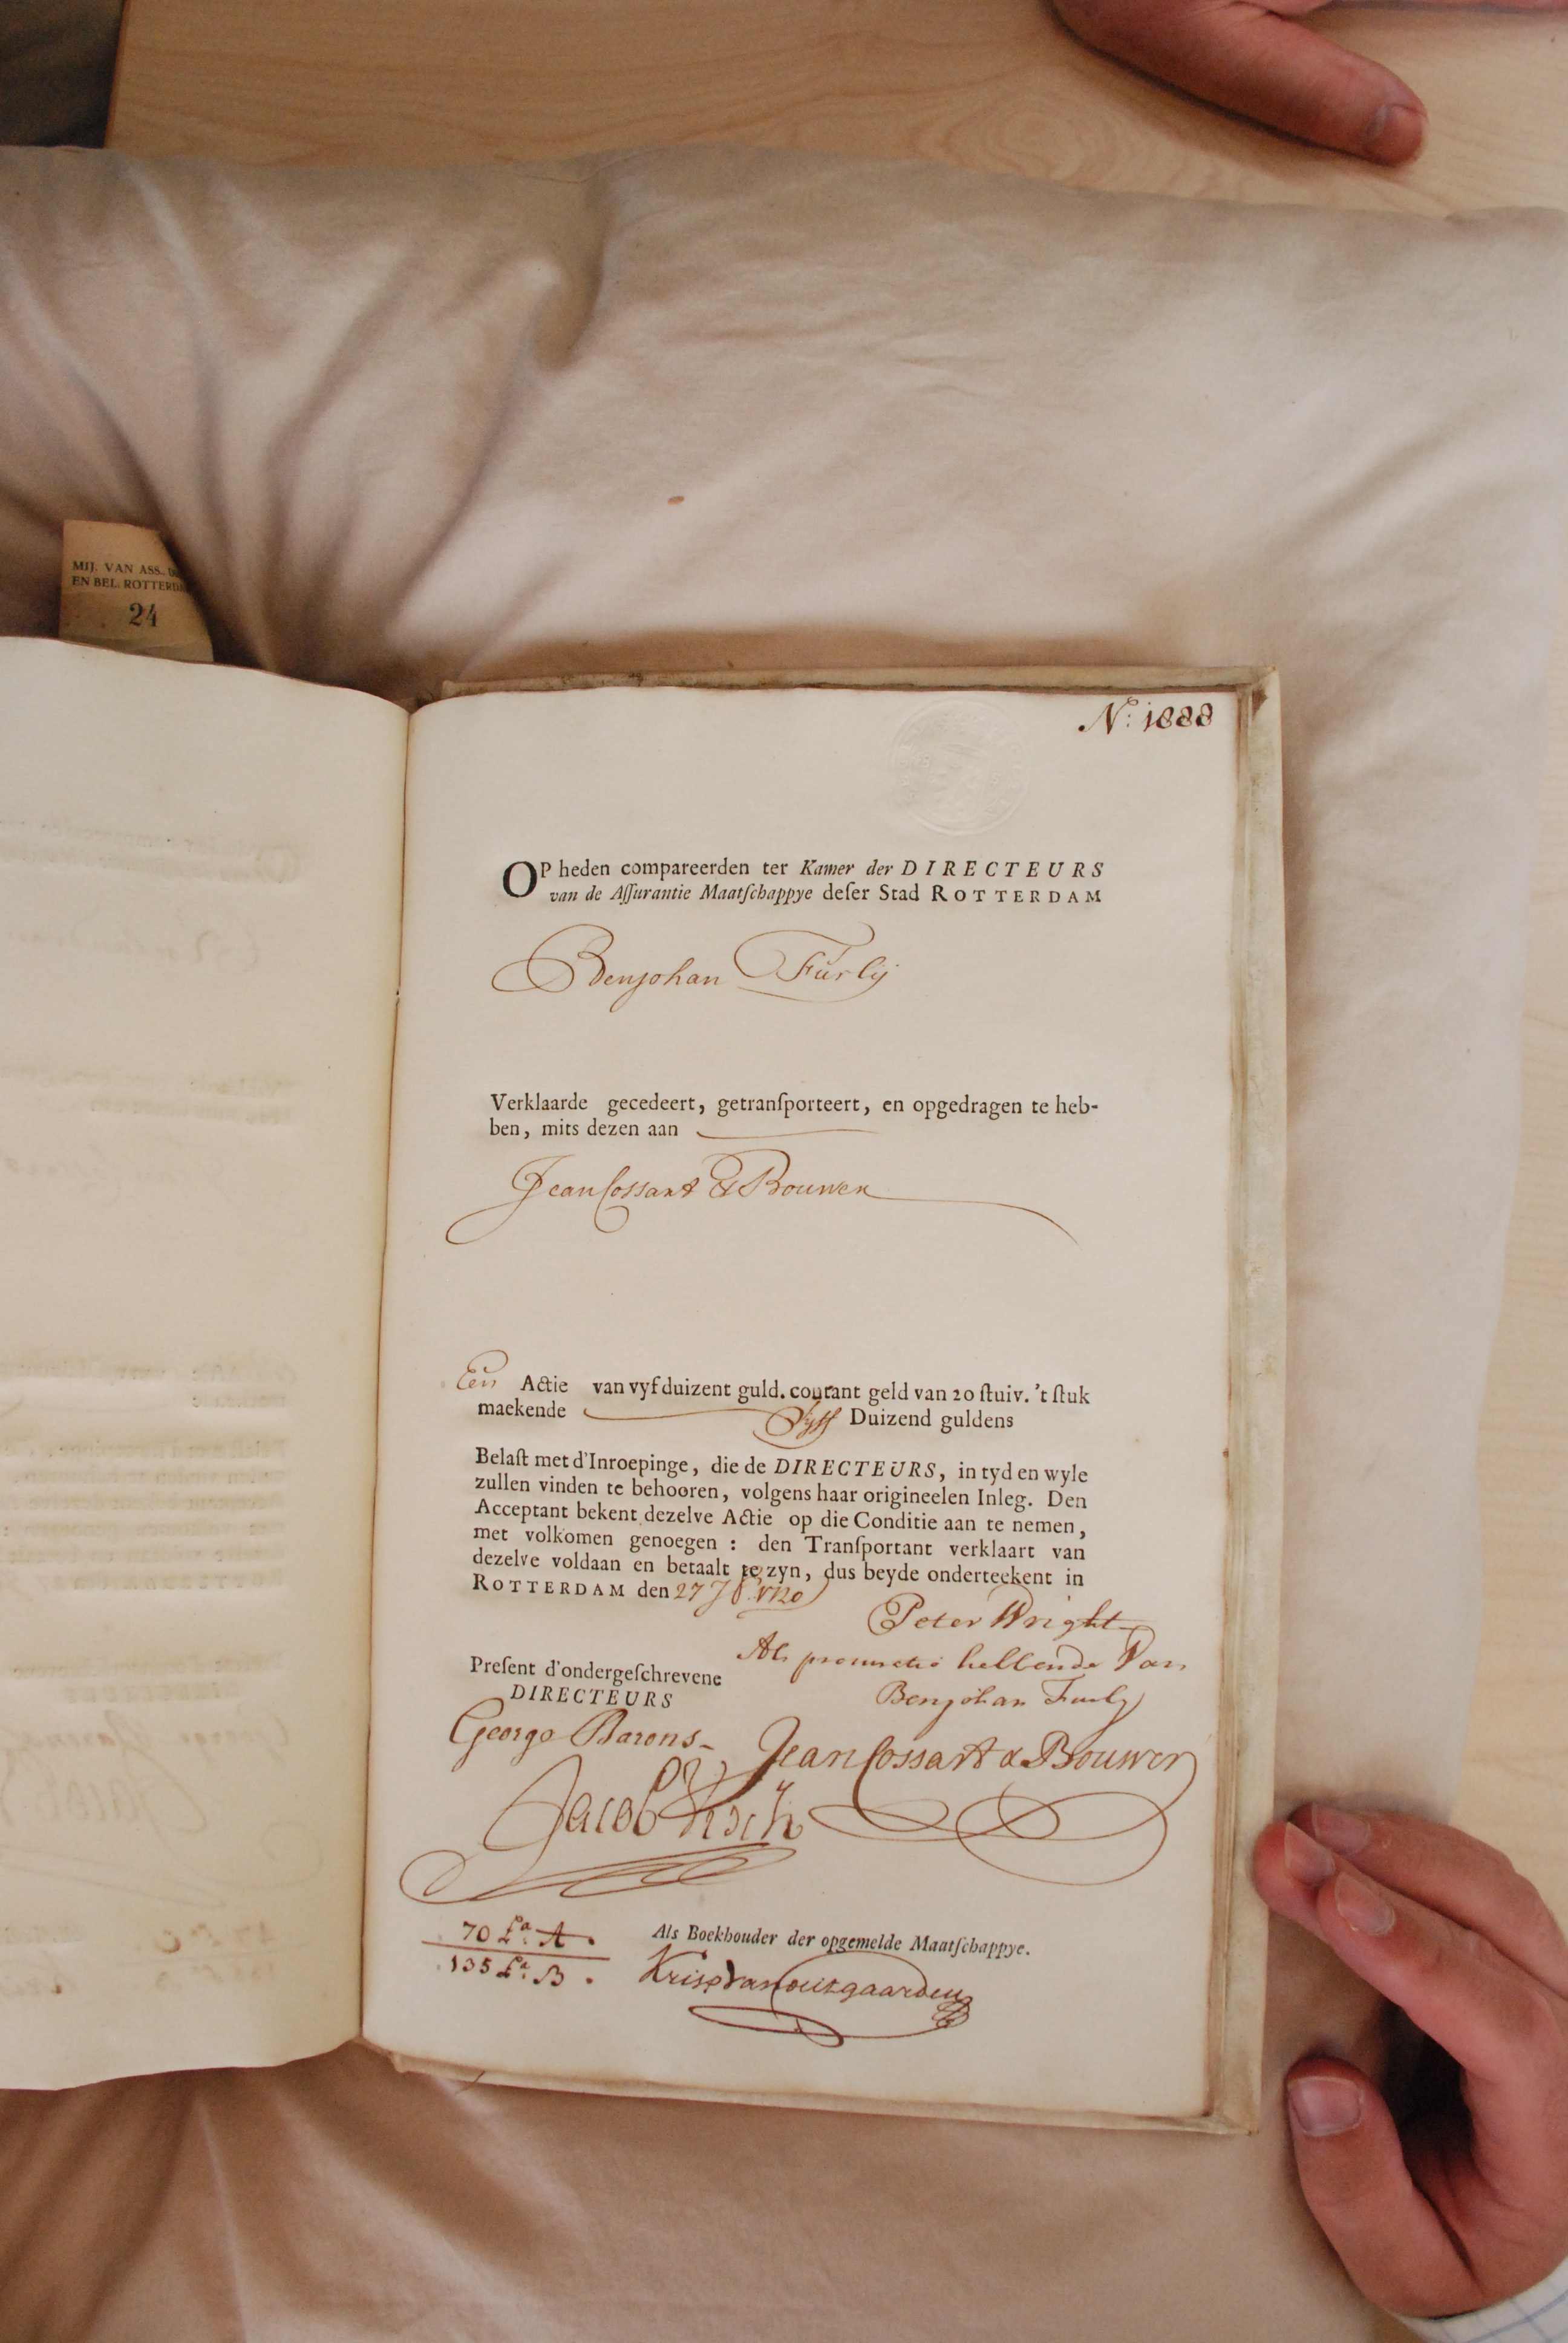 MIJ. VAN ASS.
EN BEL. ROTTERDA
24
N: 1888
OP heden compareerden ter Kamer der DIRECTEURS
van de Aſſurantie Maatſchappye deſer Stad ROTTERDAM
Benjohan Furlij
Verklaarde gecedeert, getranſporteert, en opgedragen te heb-
ben, mits dezen aan
Jean Cossart & Bouwer
Een Actie van vyf duizent guld. courant geld van 20 ſtuiv. 't ſtuk
maekende Vyff Duizend guldens
Belaſt met d'Inroepinge, die de DIRECTEURS, in tyd en wyle
zullen vinden te behooren, volgens haar origineelen Inleg. Den
Acceptant bekent dezelve Actie op die Conditie aan te nemen,
met volkomen genoegen : den Tranſportant verklaart van
dezelve voldaan en betaalt te zyn, dus beyde onderteekent in
ROTTERDAM den 27 1720
Peter Wright
Als hellende Van
Benjohan Furly
Preſent d'ondergeſchrevene
DIRECTEURS
George Barons
Jean Cossart & Bouwer
Jacob
70 La. A.
135 La. B.
Als Boekhouder der opgemelde Maatſchappye.